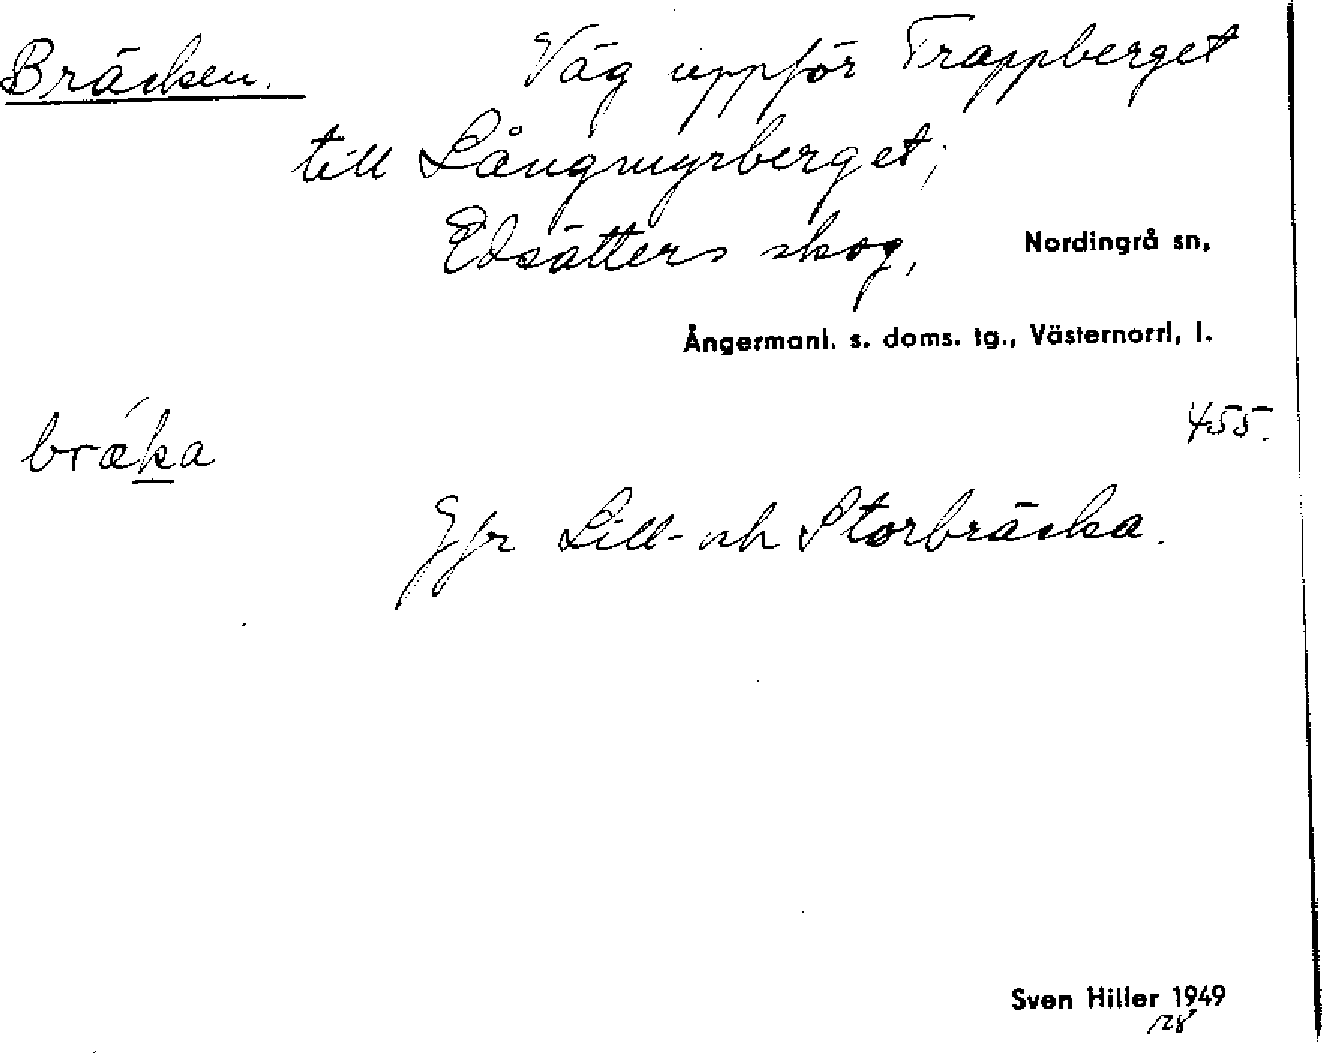 Bräcken. Väg uppför Trappberget
till Långmyrberget;
Edsätters skog, Nordingrå sn,
Ångermanl. s. doms. tg., Västernorrl, l.
455.
bræ´ka
Jfr Lill- och Storbräcka.
Sven Hiller 1949
128